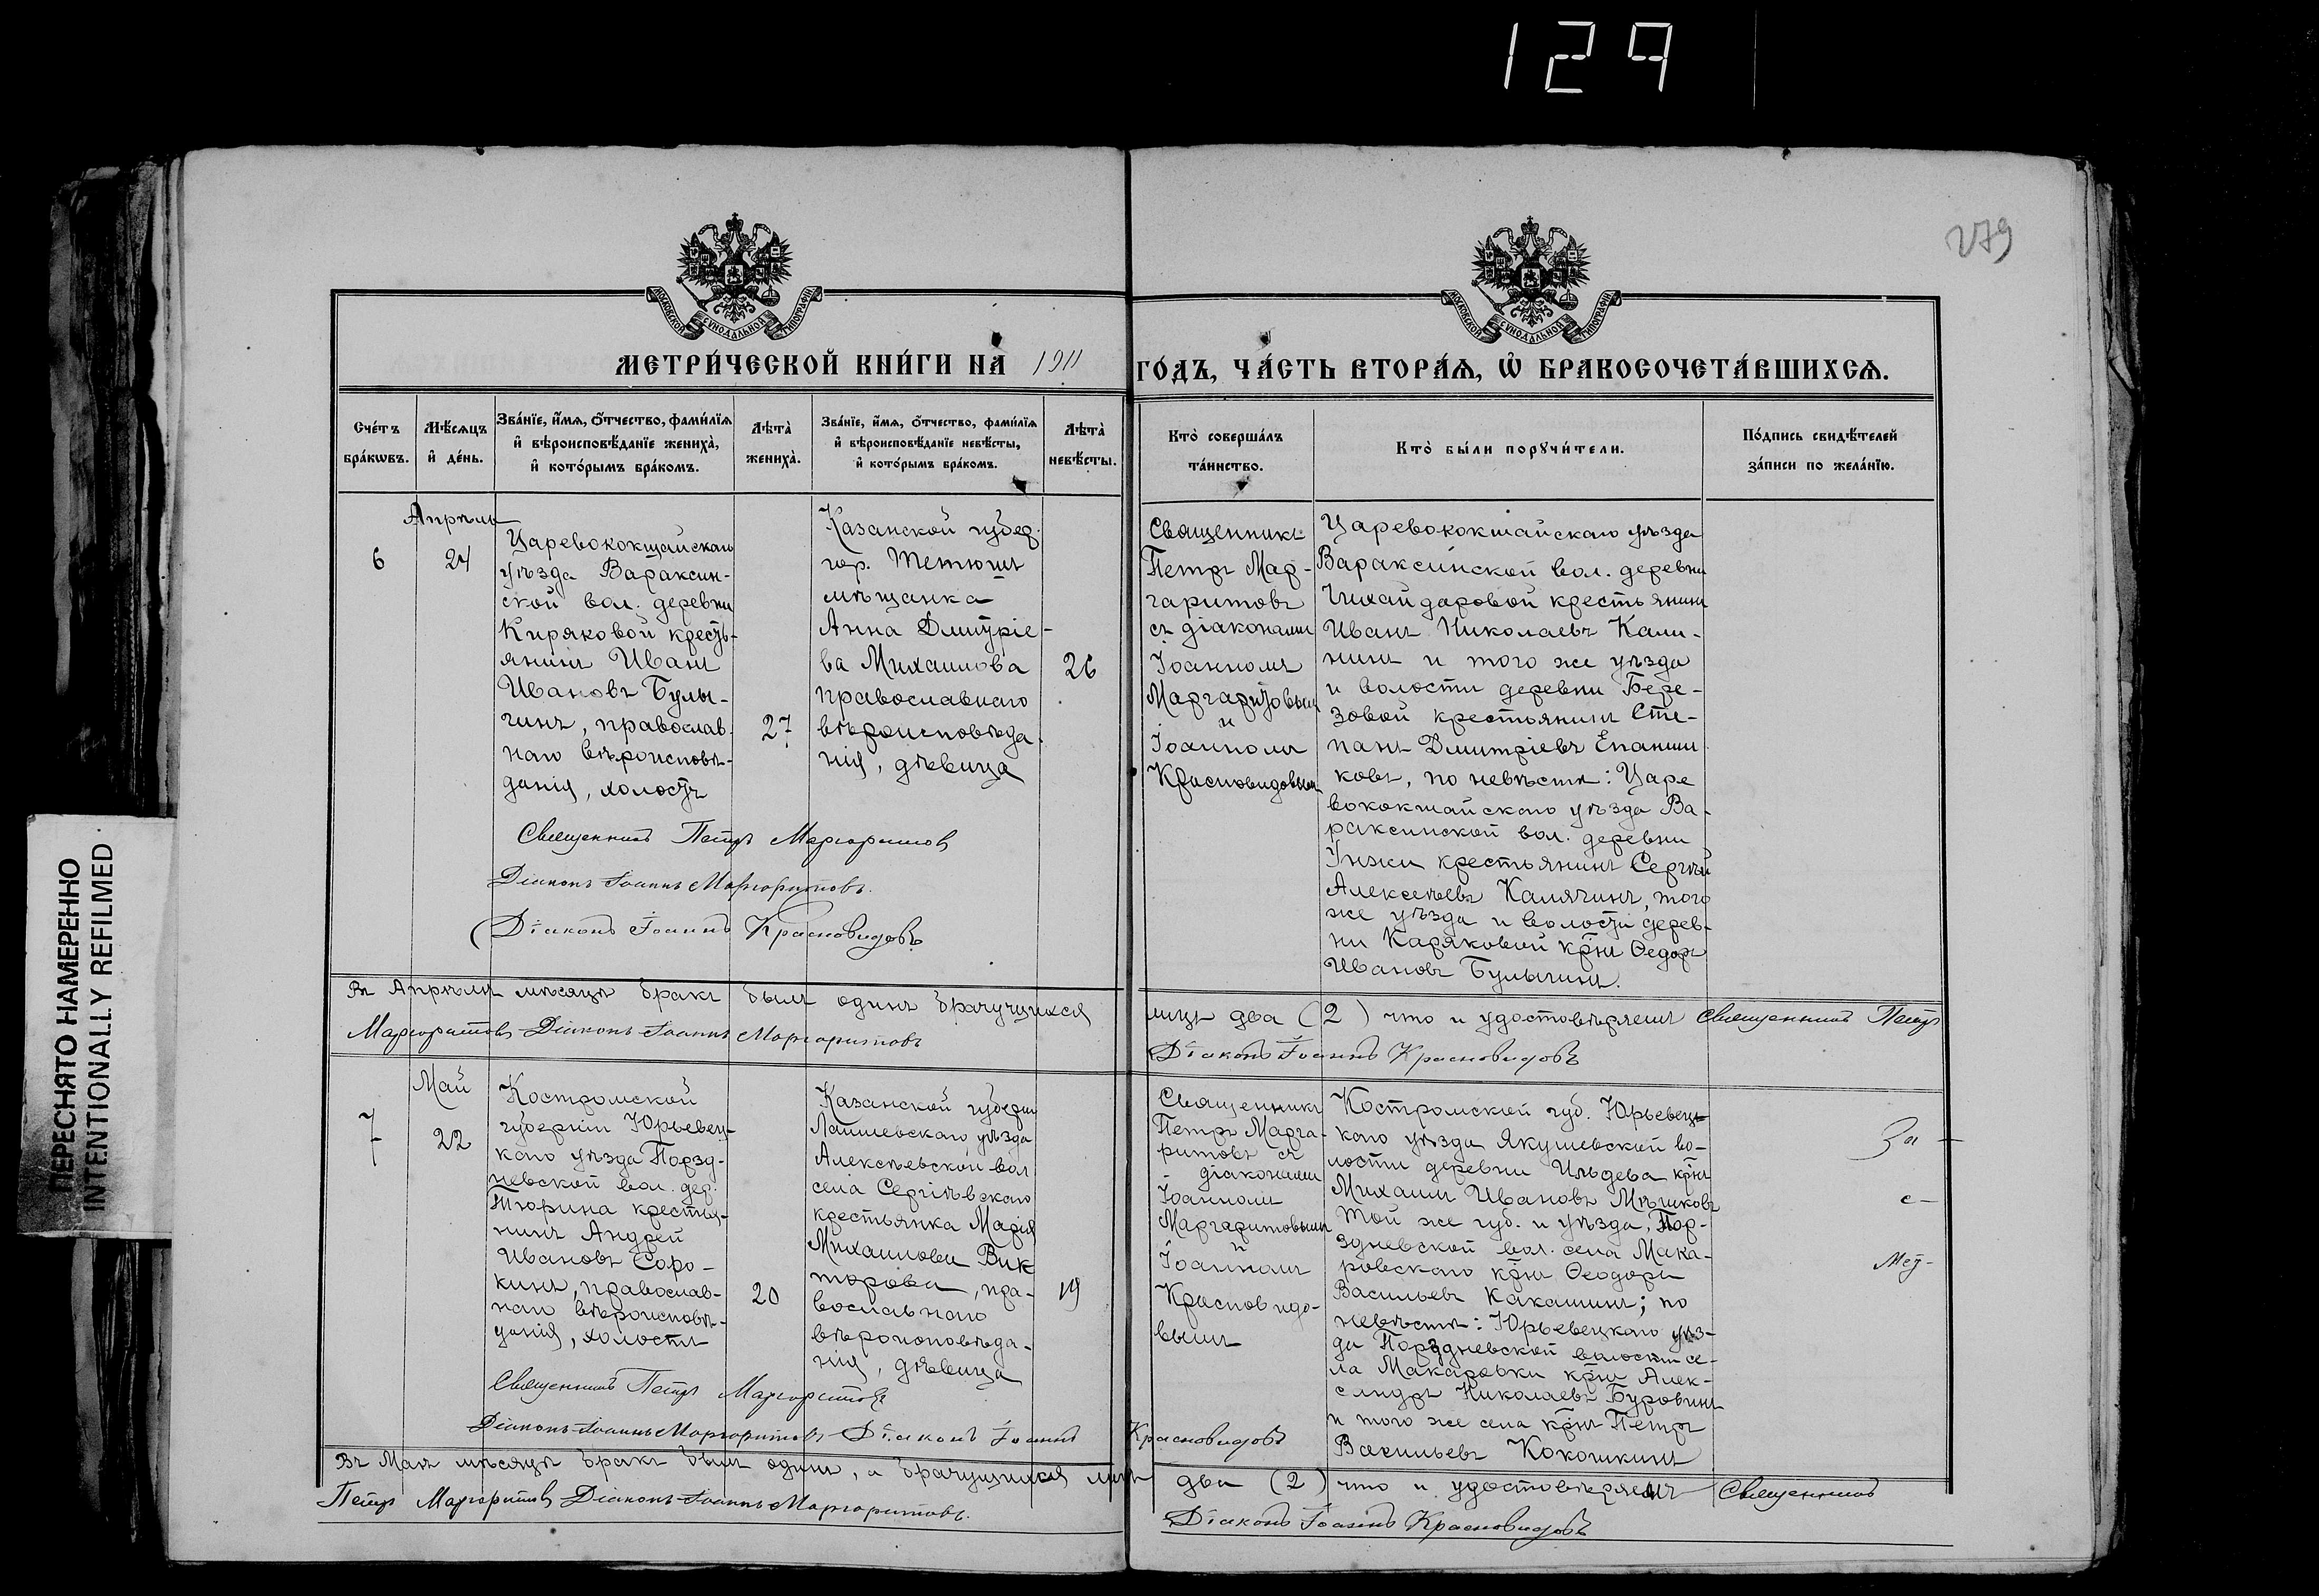 129
279
ПЕРЕСНЯТО НАМЕРЕННО
INTENTIONALLY REFILMED
МОСКОВСКОЙ СѴНОДАЛЬНОЙ ТИПОГРАФІИ
МОСКОВСКОЙ СѴНОДАЛЬНОЙ ТИПОГРАФІИ
МЕТРИ́ЧЕСКОЙ КНИ́ГИ НА 1911 ГО́ДЪ, ЧА́СТЬ ВТОРА́Ѧ, Ѡ҆ БРАКОСОЧЕТА́ВШИХСѦ.
Сче́тъ
бра́кѡвъ.
Мѣ́сѧцъ
и҆ де́нь.
Зва́нїе, и҆́мѧ, ѻ҆́тчество, фами́лїѧ
и҆ вѣроисповѣ́данїе жениха̀,
и҆ кото́рымъ бра́комъ.
Лѣта̀
жениха̀.
Зва́нїе, и҆́мѧ, ѻ҆́тчество, фами́лїѧ
и҆ вѣроисповѣ́данїе невѣ́сты,
и҆ кото́рымъ бра́комъ.
Лѣта̀
невѣ́сты.
Кто̀ соверша́лъ
та́инство.
Кто̀ бы́ли порꙋчи́тели.
По́дпись свидѣ́телей
за́писи по жела́нїю.
6
Апрѣль
24
Царевококшайскаго
уѣзда Вараксин-
ской вол. деревни
Киряковой кресть-
янинъ Иванъ
Ивановъ Булы-
гинъ, православ-
наго вѣроисповѣ-
данія, холостъ
27
Казанской губер.
гор. Тетюшъ
мѣщанка
Анна Дмитріе-
ва Михаилова
православнаго
вѣроисповѣда-
нія, дѣвица
26
Священникъ
Петръ Мар-
гаритовъ
съ діаконами
Іоанномъ
Маргаритовымъ
и
Іоанномъ
Красновидовымъ
Царевококшайскаго уѣзда
Вараксинской вол. деревни
Чихайдаровой крестьянинъ
Иванъ Николаевъ Кали-
нинъ и того же уѣзда
и волости деревни Бере-
зовой крестьянинъ Сте-
панъ Дмитріевъ Епанши
ковъ, по невѣстѣ: Царе
вококшайскаго уѣзда Ва-
раксинской вол. деревни
Унжи крестьянинъ Сергѣй
Алексѣевъ Калягинъ, того
же уѣзда и волости дерев-
ни Каряковой крн Ѳедоръ
Ивановъ Булыгинъ.
Священникъ Петръ Маргаритовъ
Діаконъ Іоаннъ Маргаритовъ.
Діаконъ Іоаннъ Красновидовъ.
Въ Апрѣлѣ мѣсяцѣ бракъ былъ одинъ брачущихся лицъ два (2) что и удостовѣряемъ Священникъ Петръ
Маргаритовъ Діаконъ Іоаннъ Маргаритовъ Діаконъ Іоаннъ Красновидовъ
7
Май
22
Костромской
губерніи Юрьевец-
каго уѣзда Порзд-
невской вол. дер.
Тюрина крестья-
нинъ Андрей
Ивановъ Соро-
кинъ, православ-
наго вѣроисповѣ-
данія, холостъ
20
Казанской губерніи
Лаишевскаго уѣзда
Алексѣевской вол
села Сергіевскаго
крестьянка Марія
Михаилова Вик
торова, пра-
вославнаго
вѣроисповѣда-
нія, дѣвица
19
Священникъ
Петръ Марга-
ритовъ съ
діаконами
Іоанномъ
Маргаритовымъ
и
Іоанномъ
Красновидо-
вымъ
Костромской губ. Юрьевец-
каго уѣзда Якушевской во-
лости деревни Ильдева крн
Михаилъ Ивановъ Мѣшковъ
той же губ. и уѣзда, Пор-
здневской вол. села Мака-
ровскаго крн Ѳеодоръ
Васильевъ Какашинъ; по
невѣстѣ: Юрьевецкаго уѣз-
да Порздневской волости се-
ла Макаровки крн Алек-
сандръ Николаевъ Буровинъ
и того же села крн Петръ
Васильевъ Кокошкинъ
Священникъ Петръ Маргаритовъ
Діаконъ Іоаннъ Маргаритовъ Діаконъ Іоаннъ Красновидовъ
Въ Маѣ мѣсяцѣ бракъ былъ одинъ, а брачущихся лицъ два (2) что и удостовѣряемъ Священникъ
Петръ Маргаритовъ Діаконъ Іоаннъ Маргаритовъ. Діаконъ Іоаннъ Красновидовъ